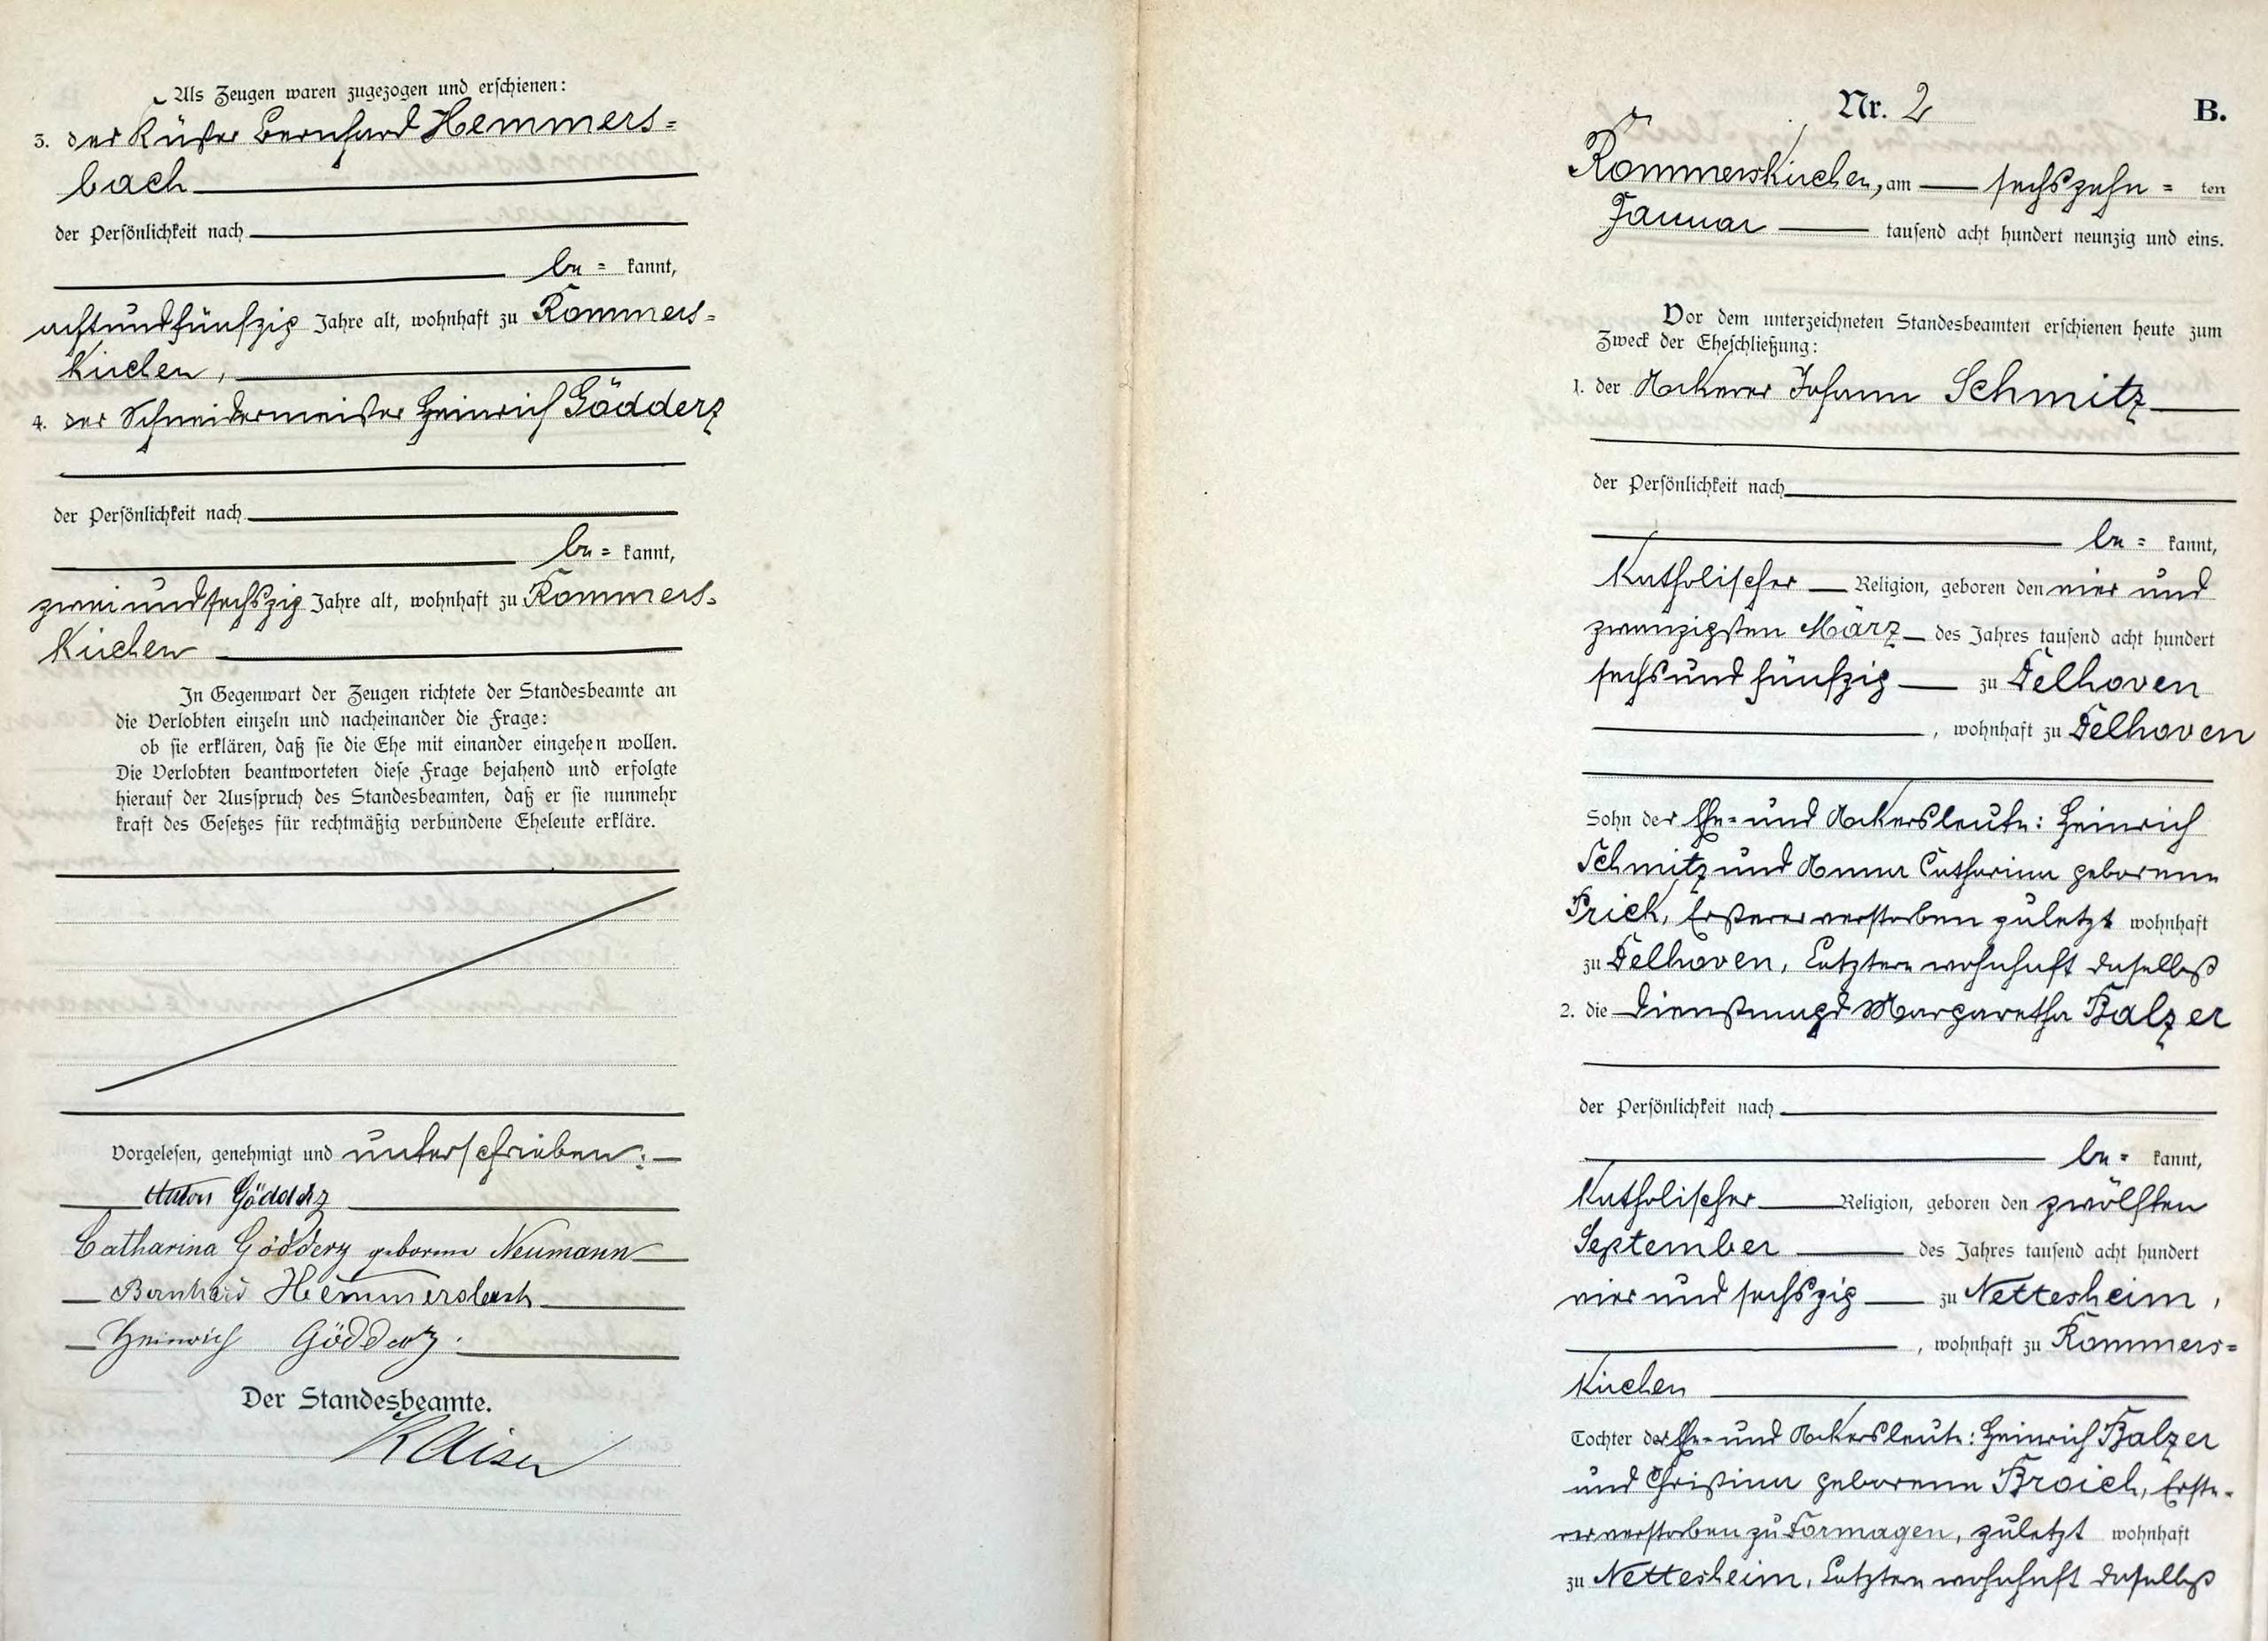 Als Zeugen waren zugezogen und erschienen:
3. der Küster Bernhard Hemmers=
bach
der Persönlichkeit nach
be= kannt,
achtundfünfzig Jahre alt, wohnhaft zu Rommers=
kirchen,
4. der Schneidermeister Heinrich Gödderz
der Persönlichkeit nach
be= kannt,
zweiundsechszig Jahre alt, wohnhaft zu Rommers=
kirchen
In Gegenwart der Zeugen richtete der Standesbeamte an
die Verlobten einzeln und nacheinander die Frage:
ob sie erklären, daß sie die Ehe mit einander eingehen wollen.
Die Verlobten beantworteten diese Frage bejahend und erfolgte
hierauf der Ausspruch des Standesbeamten, daß er sie nunmehr
kraft des Gesetzes für rechtmäßig verbundene Eheleute erkläre.
Vorgelesen, genehmigt und unterschrieben:
Anton Gödderz
Catharina Gödderz geborene Neumann
Bernhard Hemmersbach
Heinrich Gödderz.
Der Standesbeamte.
Kaiser
Nr. 2 B.
Rommerskirchen, am sechszehn= ten
Januar tausend acht hundert neunzig und eins.
Vor dem unterzeichneten Standesbeamten erschienen heute zum
Zweck der Eheschließung:
1. der Ackerer Johann Schmitz
der Persönlichkeit nach
be= kannt,
katholischer Religion, geboren den vier und
zwanzigsten März des Jahres tausend acht hundert
sechs und fünfzig zu Delhoven
, wohnhaft zu Delhoven
Sohn der Ehe= und Ackersleute: Heinrich
Schmitz und Anna Catharina geborene
Frick, Ersterer verstorben zuletzt wohnhaft
zu Delhoven, Letztere wohnhaft daselbst
2. die Dienstmagd Margaretha Balzer
der Persönlichkeit nach
be= kannt,
katholischer Religion, geboren den zwölften
September des Jahres tausend acht hundert
vier und sechszig zu Nettesheim,
, wohnhaft zu Rommers=
kirchen
Tochter der Ehe= und Ackersleute: Heinrich Balzer
und Christina geborene Broich, Erste=
rer verstorben zu Dormagen, zuletzt wohnhaft
zu Nettesheim, Letztere wohnhaft daselbst